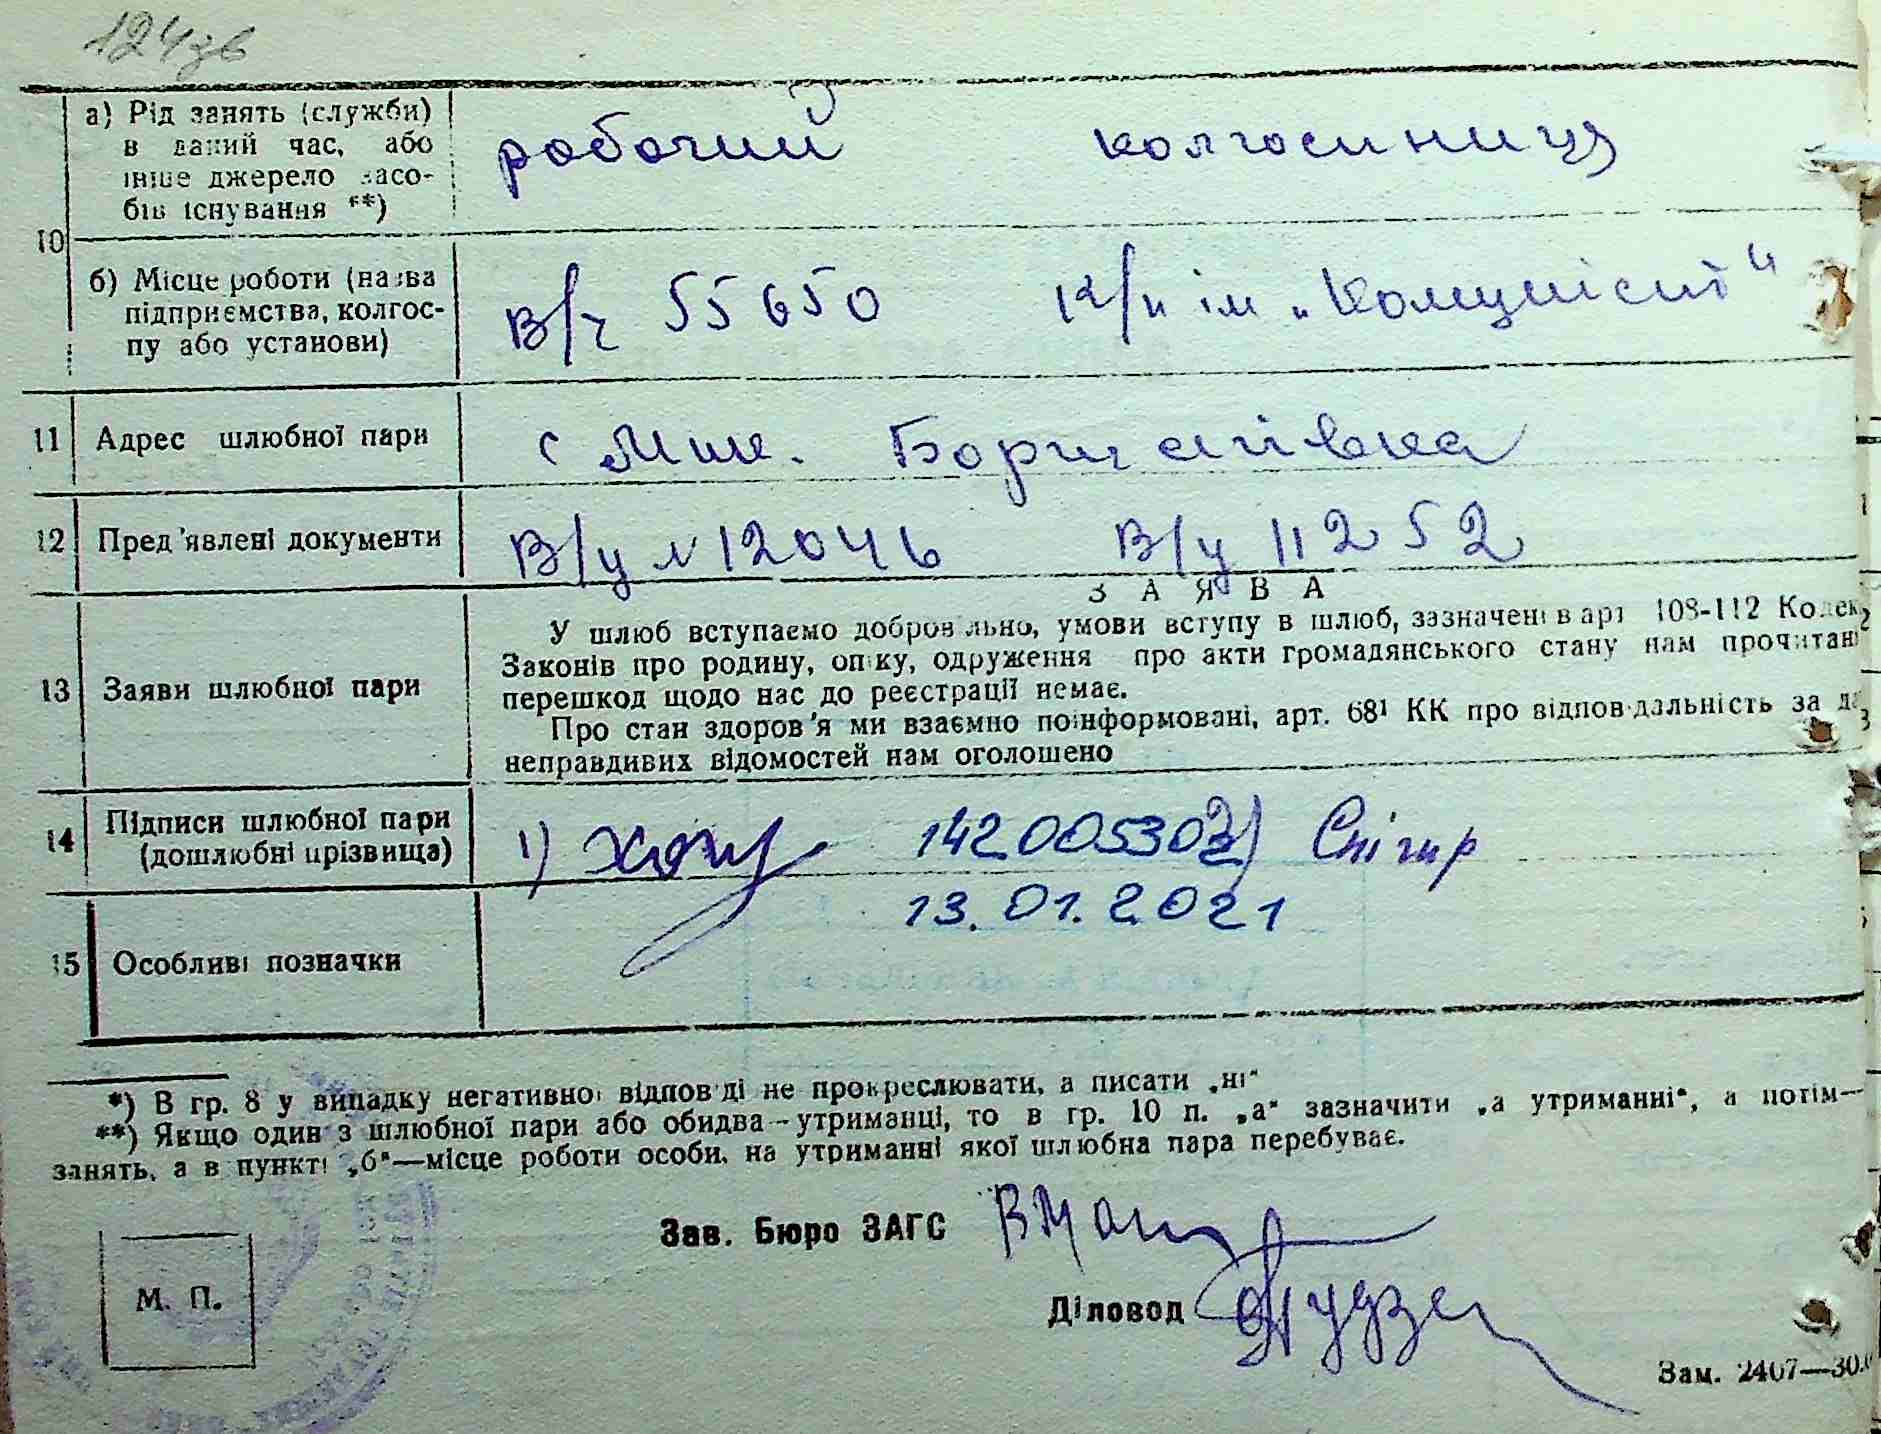 124зв
10
а) Рід занять (служби) в даний час, або інше джерело засобів існування **)
робочий колгоспниця
б) Місце роботи (назва підприємства, колгоспу або установи)
В/ч 55650 К/п ім „Комуніст"
11 Адрес шлюбної пари
с Мих. Борщагівка
12 Пред'явлені документи
В/у № 12046 В/у 11252
ЗАЯВА
13 Заяви шлюбної пари
У шлюб вступаємо добровільно, умови вступу в шлюб, зазначені в арт 108-112 Кодек
Законів про родину, опіку, одруження про акти громадянського стану нам прочитані
перешкод щодо нас до реєстрації немає.
Про стан здоров'я ми взаємно поінформовані, арт. 68¹ КК про відповідальність за да
неправдивих відомостей нам оголошено
14 Підписи шлюбної пари (дошлюбні прізвища)
1) 1420053032) Снігир
13.01.2021
15 Особливі позначки
*) В гр. 8 у випадку негативної відповіді не прокреслювати, а писати „ні"
**) Якщо один з шлюбної пари або обидва—утриманці, то в гр. 10 п. „а" зазначити „а утриманні", а потім—
занять, а в пункті „б"—місце роботи особи, на утриманні якої шлюбна пара перебуває.
Зав. Бюро ЗАГС
М. П.
Діловод
Зам. 2407—30.